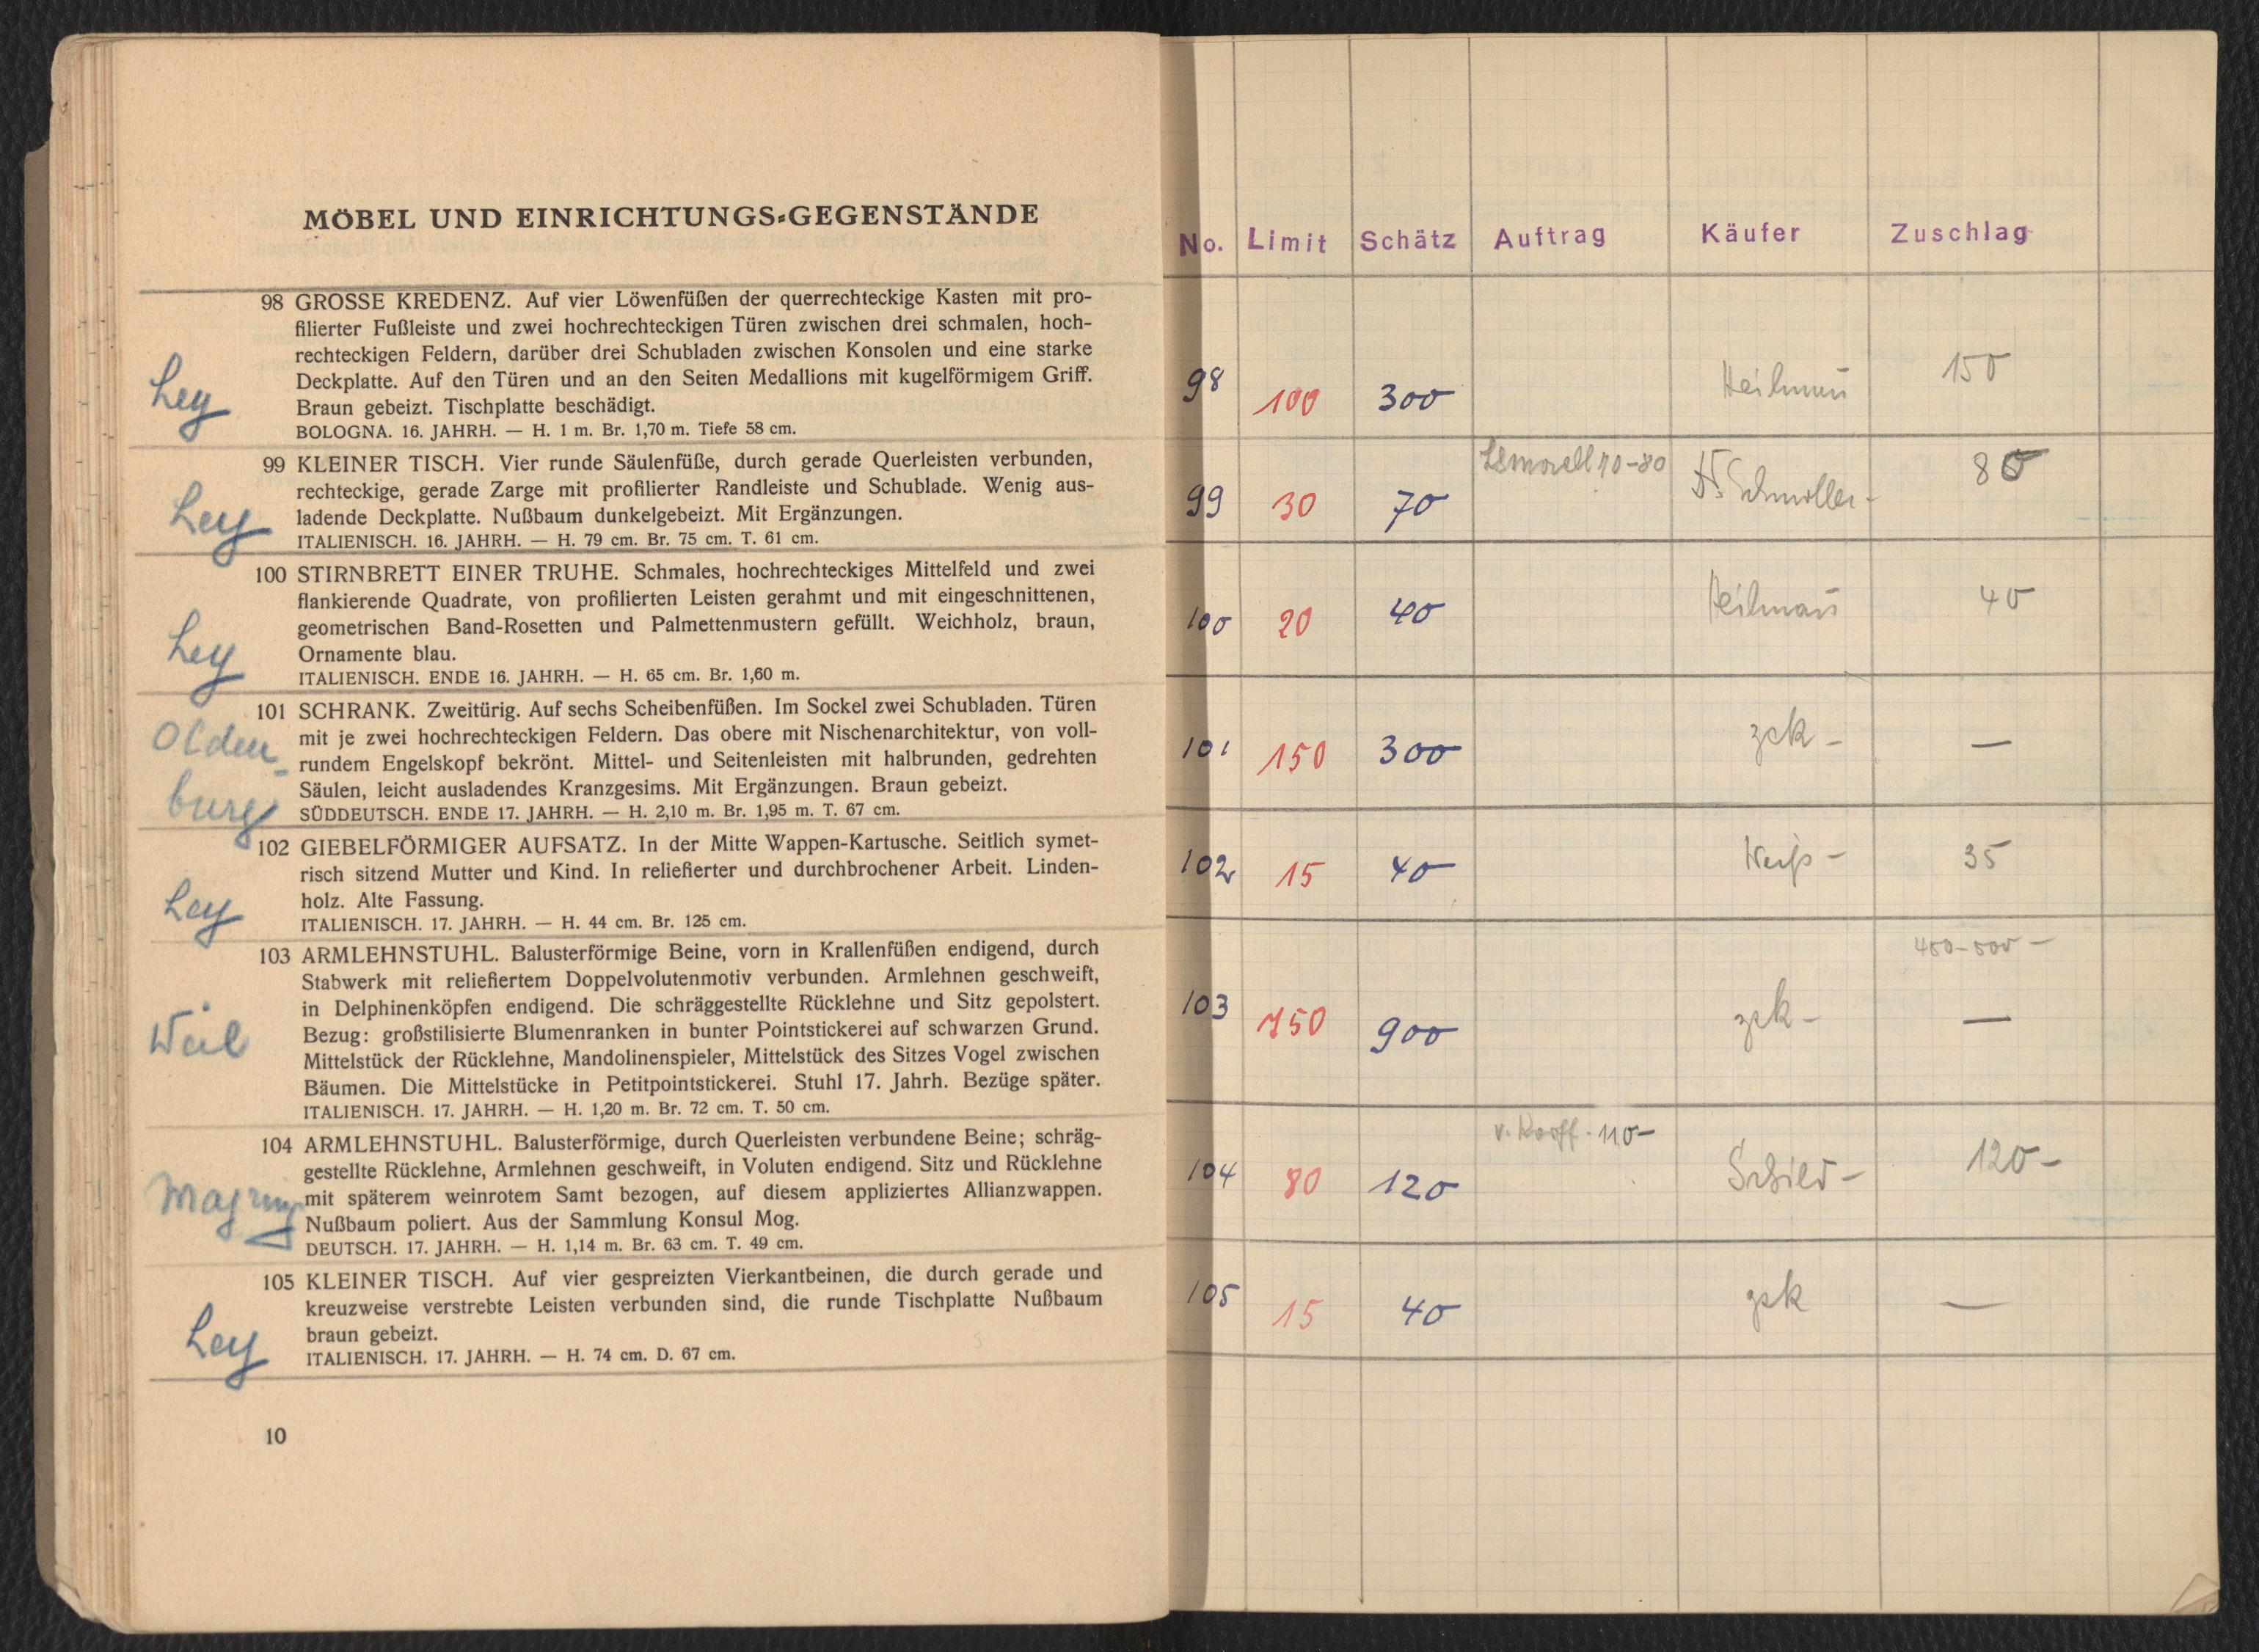 MÖBEL UND EINRICHTUNGS-GEGENSTÄNDE
98 GROSSE KREDENZ. Auf vier Löwenfüßen der querrechteckige Kasten mit pro-
filierter Fußleiste und zwei hochrechteckigen Türen zwischen drei schmalen, hoch-
rechteckigen Feldern, darüber drei Schubladen zwischen Konsolen und eine starke
Deckplatte. Auf den Türen und an den Seiten Medallions mit kugelförmigem Griff.
Braun gebeizt. Tischplatte beschädigt.
BOLOGNA. 16. JAHRH. — H. 1 m. Br. 1,70 m. Tiefe 58 cm.
Ley
99 KLEINER TISCH. Vier runde Säulenfüße, durch gerade Querleisten verbunden,
rechteckige, gerade Zarge mit profilierter Randleiste und Schublade. Wenig aus-
ladende Deckplatte. Nußbaum dunkelgebeizt. Mit Ergänzungen.
ITALIENISCH. 16. JAHRH. — H. 79 cm. Br. 75 cm. T. 61 cm.
Ley
100 STIRNBRETT EINER TRUHE. Schmales, hochrechteckiges Mittelfeld und zwei
flankierende Quadrate, von profilierten Leisten gerahmt und mit eingeschnittenen,
geometrischen Band-Rosetten und Palmettenmustern gefüllt. Weichholz, braun,
Ornamente blau.
ITALIENISCH. ENDE 16. JAHRH. — H. 65 cm. Br. 1,60 m.
Ley
101 SCHRANK. Zweitürig. Auf sechs Scheibenfüßen. Im Sockel zwei Schubladen. Türen
mit je zwei hochrechteckigen Feldern. Das obere mit Nischenarchitektur, von voll-
rundem Engelskopf bekrönt. Mittel- und Seitenleisten mit halbrunden, gedrehten
Säulen, leicht ausladendes Kranzgesims. Mit Ergänzungen. Braun gebeizt.
SÜDDEUTSCH. ENDE 17. JAHRH. — H. 2,10 m. Br. 1,95 m. T. 67 cm.
Olden-
burg
102 GIEBELFÖRMIGER AUFSATZ. In der Mitte Wappen-Kartusche. Seitlich symet-
risch sitzend Mutter und Kind. In reliefierter und durchbrochener Arbeit. Linden-
holz. Alte Fassung.
ITALIENISCH. 17. JAHRH. — H. 44 cm. Br. 125 cm.
Ley
103 ARMLEHNSTUHL. Balusterförmige Beine, vorn in Krallenfüßen endigend, durch
Stabwerk mit reliefiertem Doppelvolutenmotiv verbunden. Armlehnen geschweift,
in Delphinenköpfen endigend. Die schräggestellte Rücklehne und Sitz gepolstert.
Bezug: großstilisierte Blumenranken in bunter Pointstickerei auf schwarzen Grund.
Mittelstück der Rücklehne, Mandolinenspieler, Mittelstück des Sitzes Vogel zwischen
Bäumen. Die Mittelstücke in Petitpointstickerei. Stuhl 17. Jahrh. Bezüge später.
ITALIENISCH. 17. JAHRH. — H. 1,20 m. Br. 72 cm. T. 50 cm.
Weil
104 ARMLEHNSTUHL. Balusterförmige, durch Querleisten verbundene Beine; schräg-
gestellte Rücklehne, Armlehnen geschweift, in Voluten endigend. Sitz und Rücklehne
mit späterem weinrotem Samt bezogen, auf diesem appliziertes Allianzwappen.
Nußbaum poliert. Aus der Sammlung Konsul Mog.
DEUTSCH. 17. JAHRH. — H. 1,14 m. Br. 63 cm. T. 49 cm.
105 KLEINER TISCH. Auf vier gespreizten Vierkantbeinen, die durch gerade und
kreuzweise verstrebte Leisten verbunden sind, die runde Tischplatte Nußbaum
braun gebeizt.
ITALIENISCH. 17. JAHRH. — H. 74 cm. D. 67 cm.
Ley
10
No. Limit Schätz Auftrag Käufer Zuschlag
98 100 300 Heilman 150
99 30 70 70-80 Schmoller- 80
100 20 40 Heilman 40
101 150 300 zck - —
102 15 40 Weiß - 35
450-500 -
103 750 900 zck - —
v. Korff - 110-
104 80 120 Schild - 120-
105 15 40 zck —